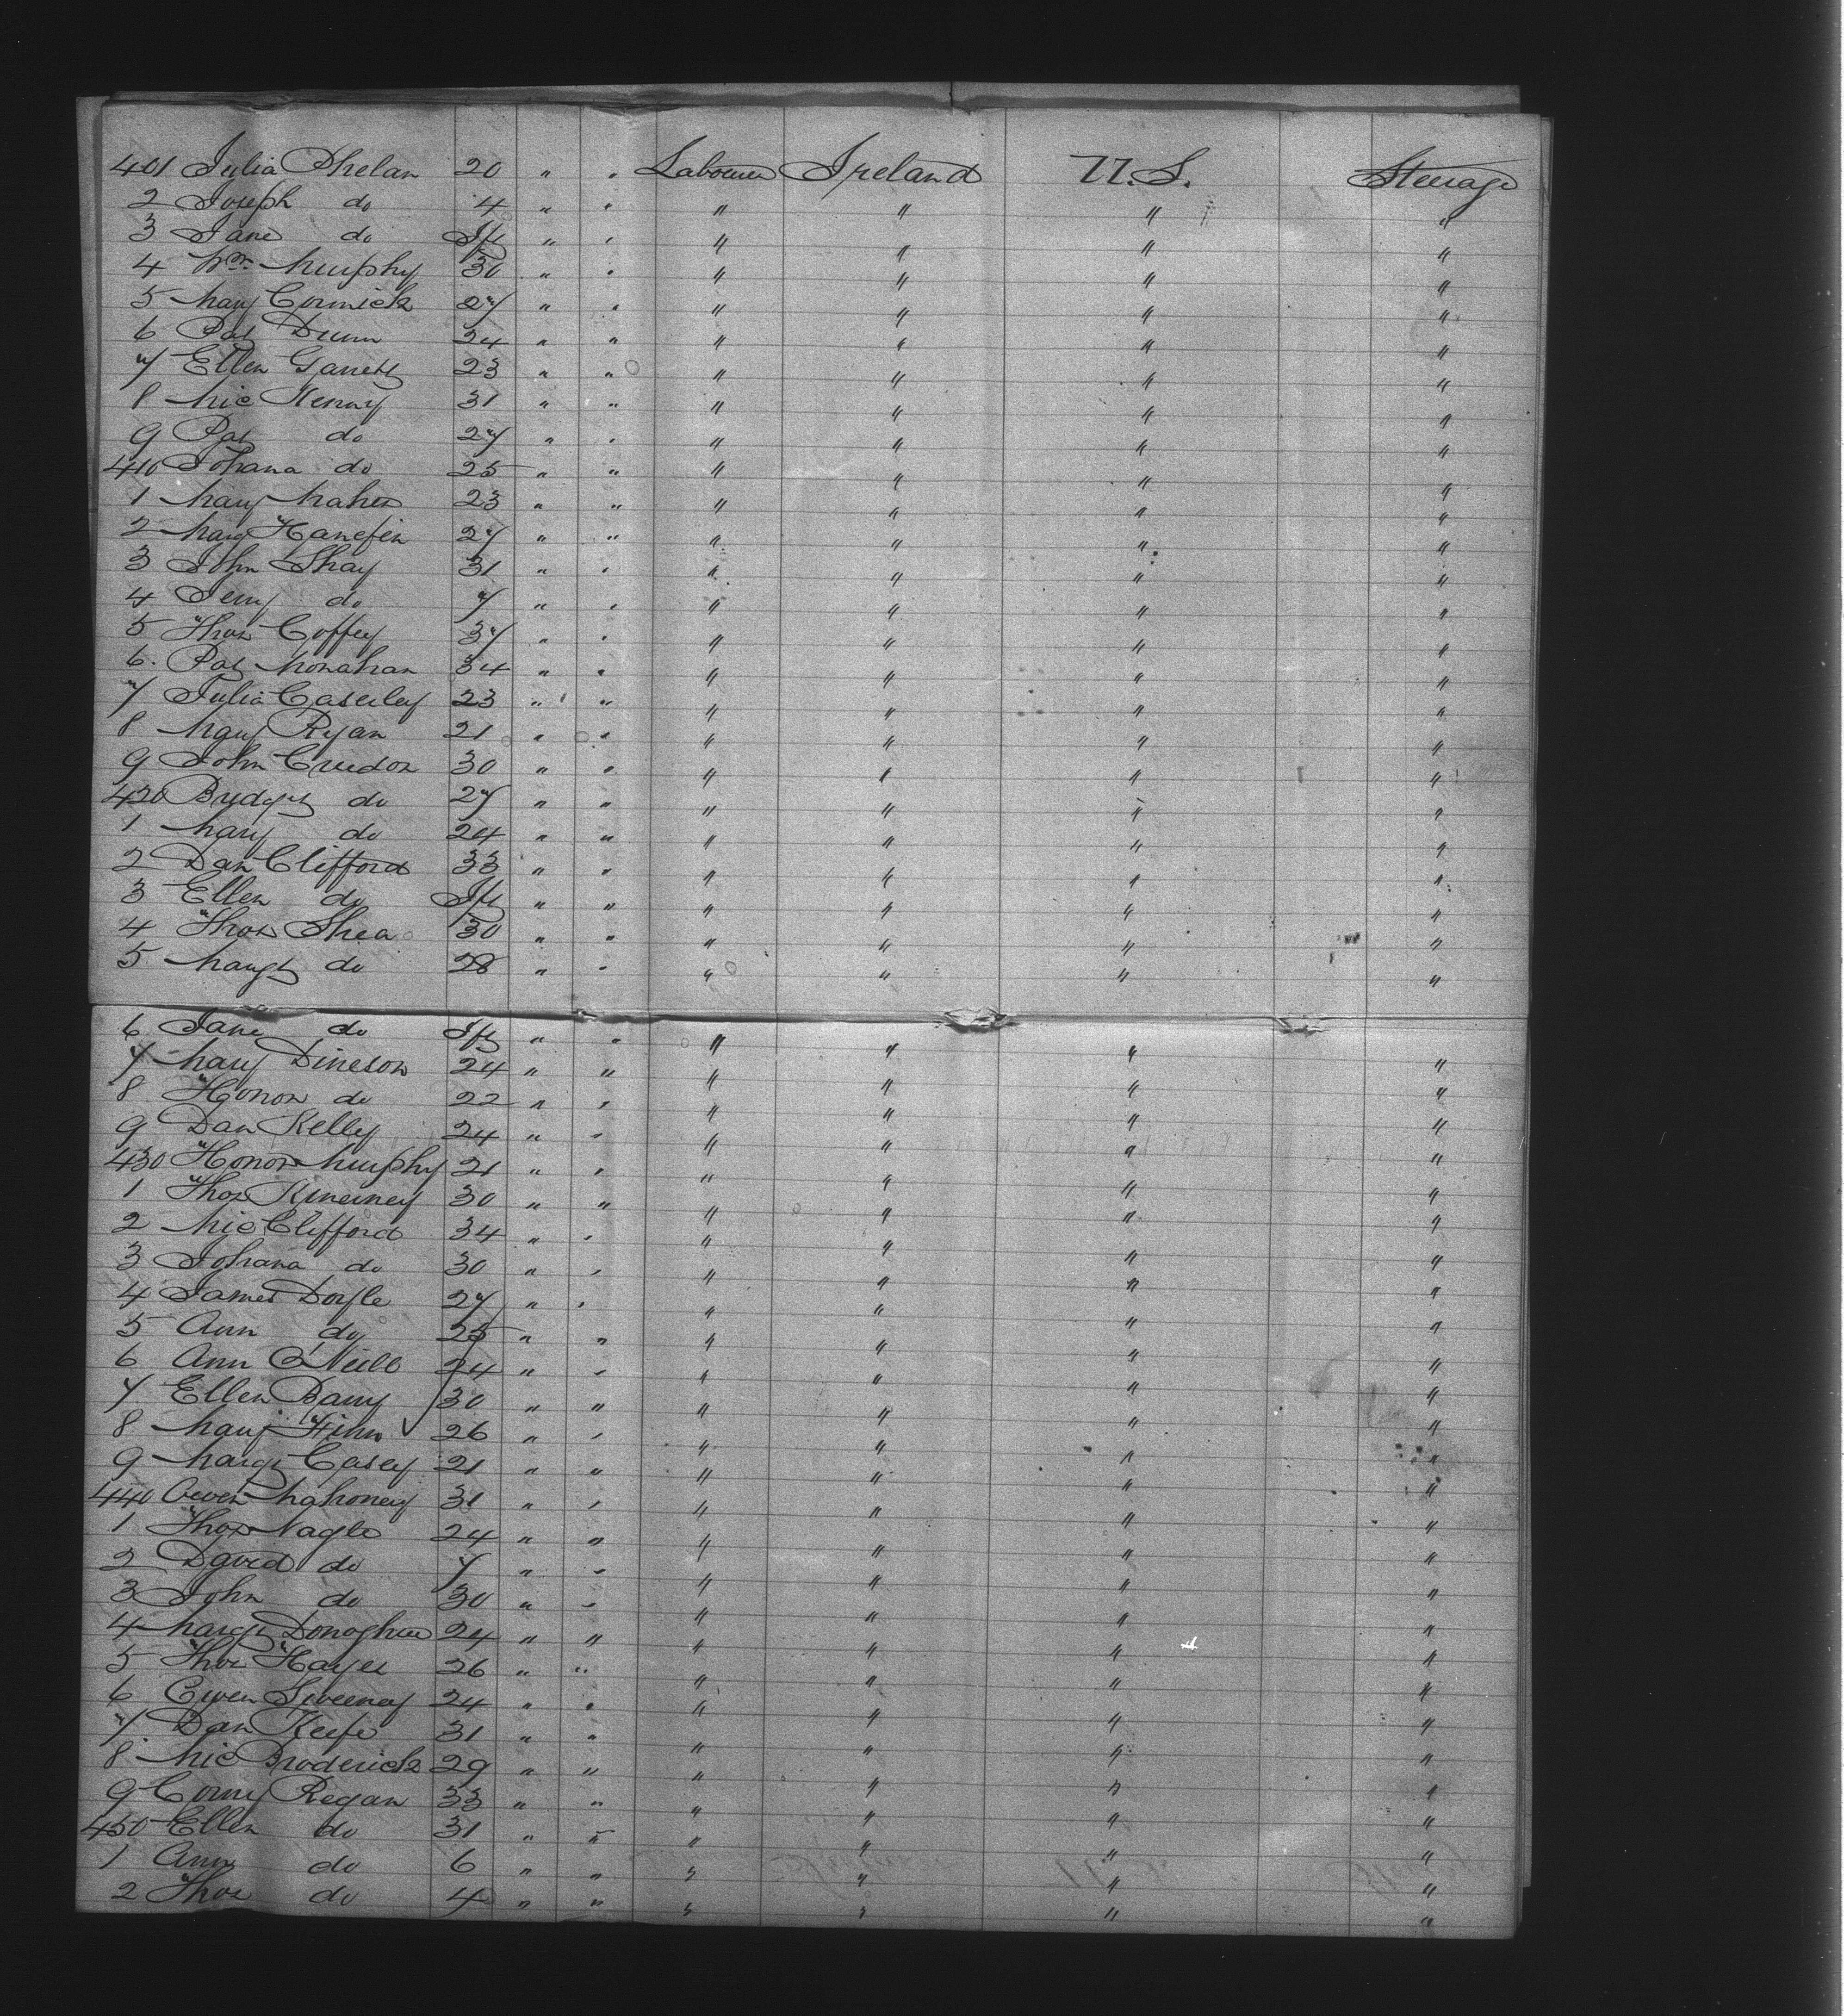 401 Julia Phelan 20 " " Labourer Ireland U.S. Steerage
2 Joseph do 4 " " " " " "
3 Jane do Inft " " " " " "
4 Wm Murphy 30 " " " " " "
5 Mary Cormick 27 " " " " " "
6 Pat Drum 34 " " " " " "
7 Ellen Garrett 23 " " " " " "
8 Mic Kenny 31 " " " " " "
9 Pat do 27 " " " " " "
410 Johana do 25 " " " " " "
1 Mary Maher 23 " " " " " "
2 Mary Hanefin 27 " " " " " "
3 John Shay 31 " " " " " "
4 Jerry do 7 " " " " " "
5 Thos Coffey 37 " " " " " "
6 Pat Monahan 34 " " " " " "
7 Julia Caserley 23 " " " " " "
8 Mary Ryan 21 " " " " " "
9 John Creedon 30 " " " " " "
420 Bridget do 27 " " " " " "
1 Mary do 24 " " " " " "
2 Dan Clifford 33 " " " " " "
3 Ellen do Inft " " " " " "
4 Thos Shea 30 " " " " " "
5 Margt do 28 " " " " " "
6 Jane do Inft " " " " " "
7 Mary Dineson 24 " " " " " "
8 Honor do 22 " " " " " "
9 Dan Kelly 24 " " " " " "
430 Honor Murphy 21 " " " " " "
1 Thos Kinerney 30 " " " " " "
2 Mic Clifford 34 " " " " " "
3 Johana do 30 " " " " " "
4 James Doyle 27 " " " " " "
5 Ann do 25 " " " " " "
6 Ann O'Neill 24 " " " " " "
7 Ellen Barry 30 " " " " " "
8 Mary Finn 26 " " " " " "
9 Margt Casey 21 " " " " " "
440 Owen Mahoney 31 " " " " " "
1 Thos Nagle 24 " " " " " "
2 David do 7 " " " " " "
3 John do 30 " " " " " "
4 Margt Donoghue 24 " " " " " "
5 Thos Hayes 26 " " " " " "
6 Owen Sweeney 24 " " " " " "
7 Dan Keefe 31 " " " " " "
8 Mic Broderick 29 " " " " " "
9 Corny Regan 33 " " " " " "
450 Ellen do 31 " " " " " "
1 Ann do 6 " " " " " "
2 Thos do 4 " " " " " "